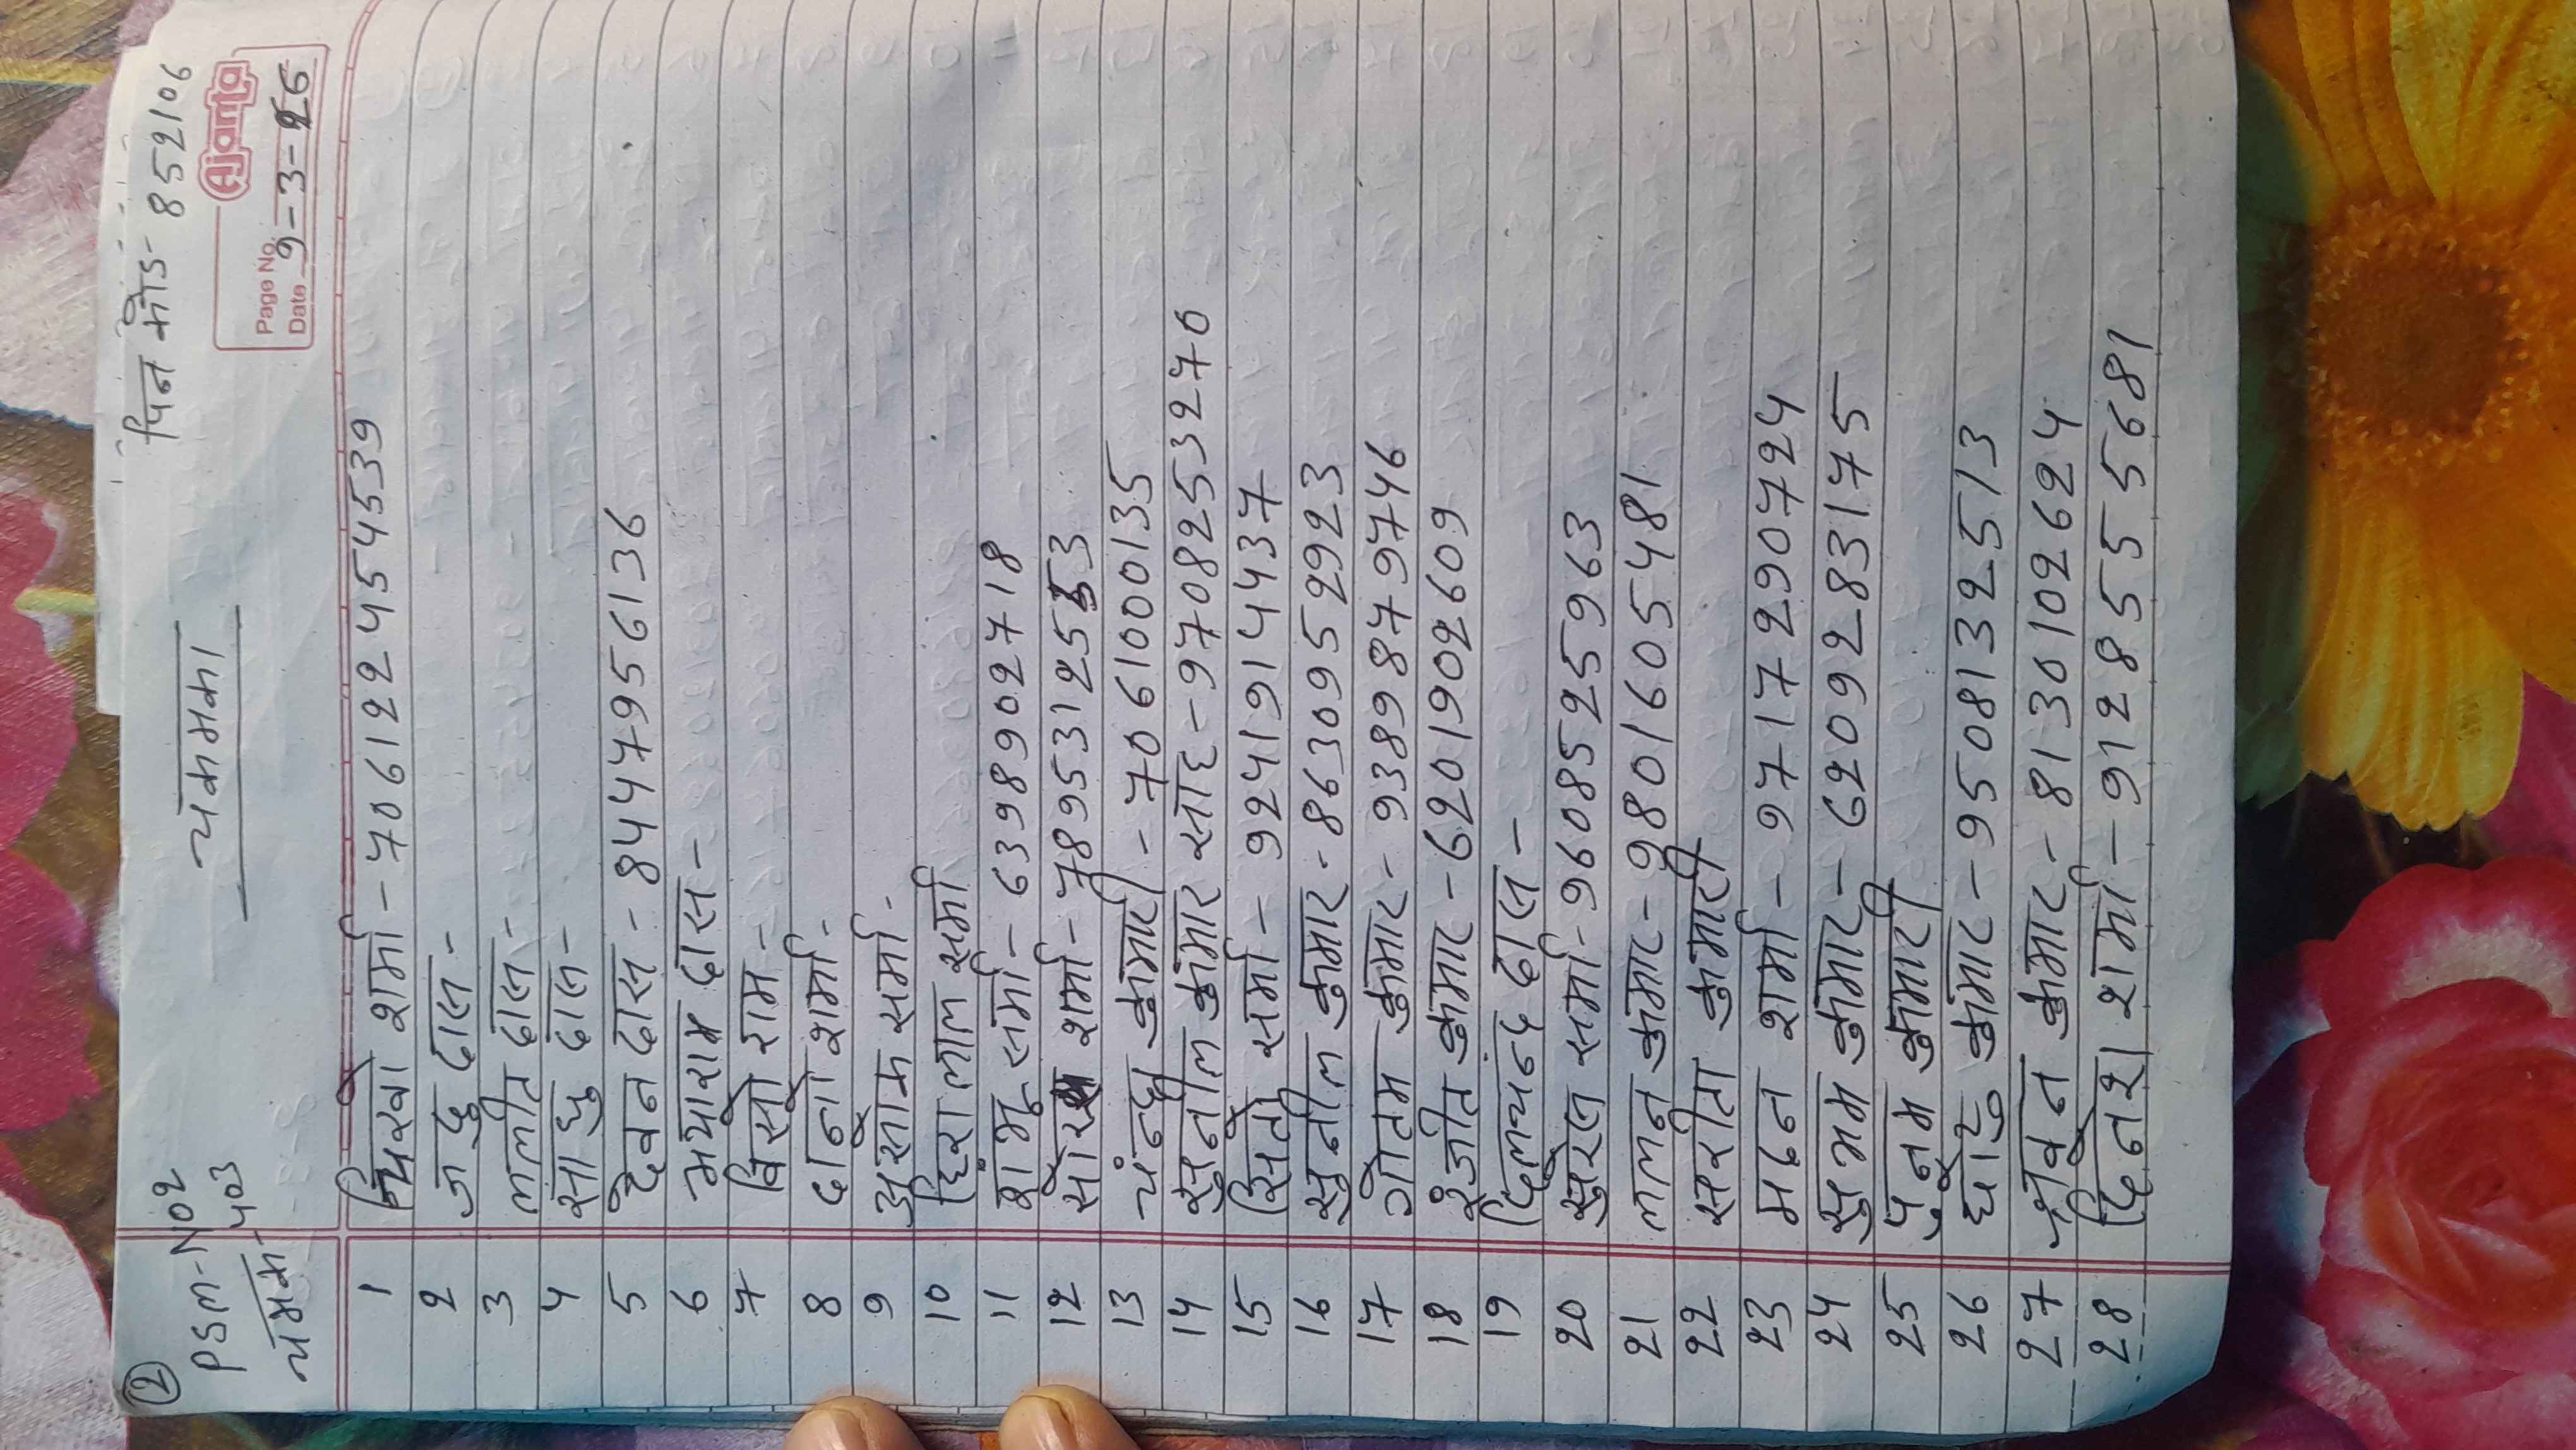 (2)
PSM-No2 चकमका पिन कोड- 852106
चकमका-403
Ajanta
Page No.
Date 9-3-26
1 शर्मा - 7061224554539
2 जदु दास -
3 ललीत दास -
4 साधु दास -
5 देवन दास - 8447956136
6 मयाराम दास -
7 विसो राम -
8 दानो शर्मा -
9 असोक सर्मा -
10 हिरा लाल सर्मा
11 शंभू सर्मा - 6398902718
12 शर्मा - 7895312553
13 चंन्दा कुमारी - 7061000135
14 सुनील कुमार साह - 9708253270
15 सर्मा - 9241914437
16 सुनील कुमार - 8630952923
17 गोतम कुमार - 9389879746
18 रंजीत कुमार - 6201902609
19 दिलचन्द दास -
20 सुरेस सर्मा - 9608525963
21 ललन कुमार - 9801605481
22 सरीता कुमारी
23 मदन शर्मा - 9717290724
24 सुभम कुमार - 6209283175
25 पुनम कुमारी
26 कुमार - 9508132513
27 कुमार - 8130102624
28 दिनेश शर्मा - 9128555681